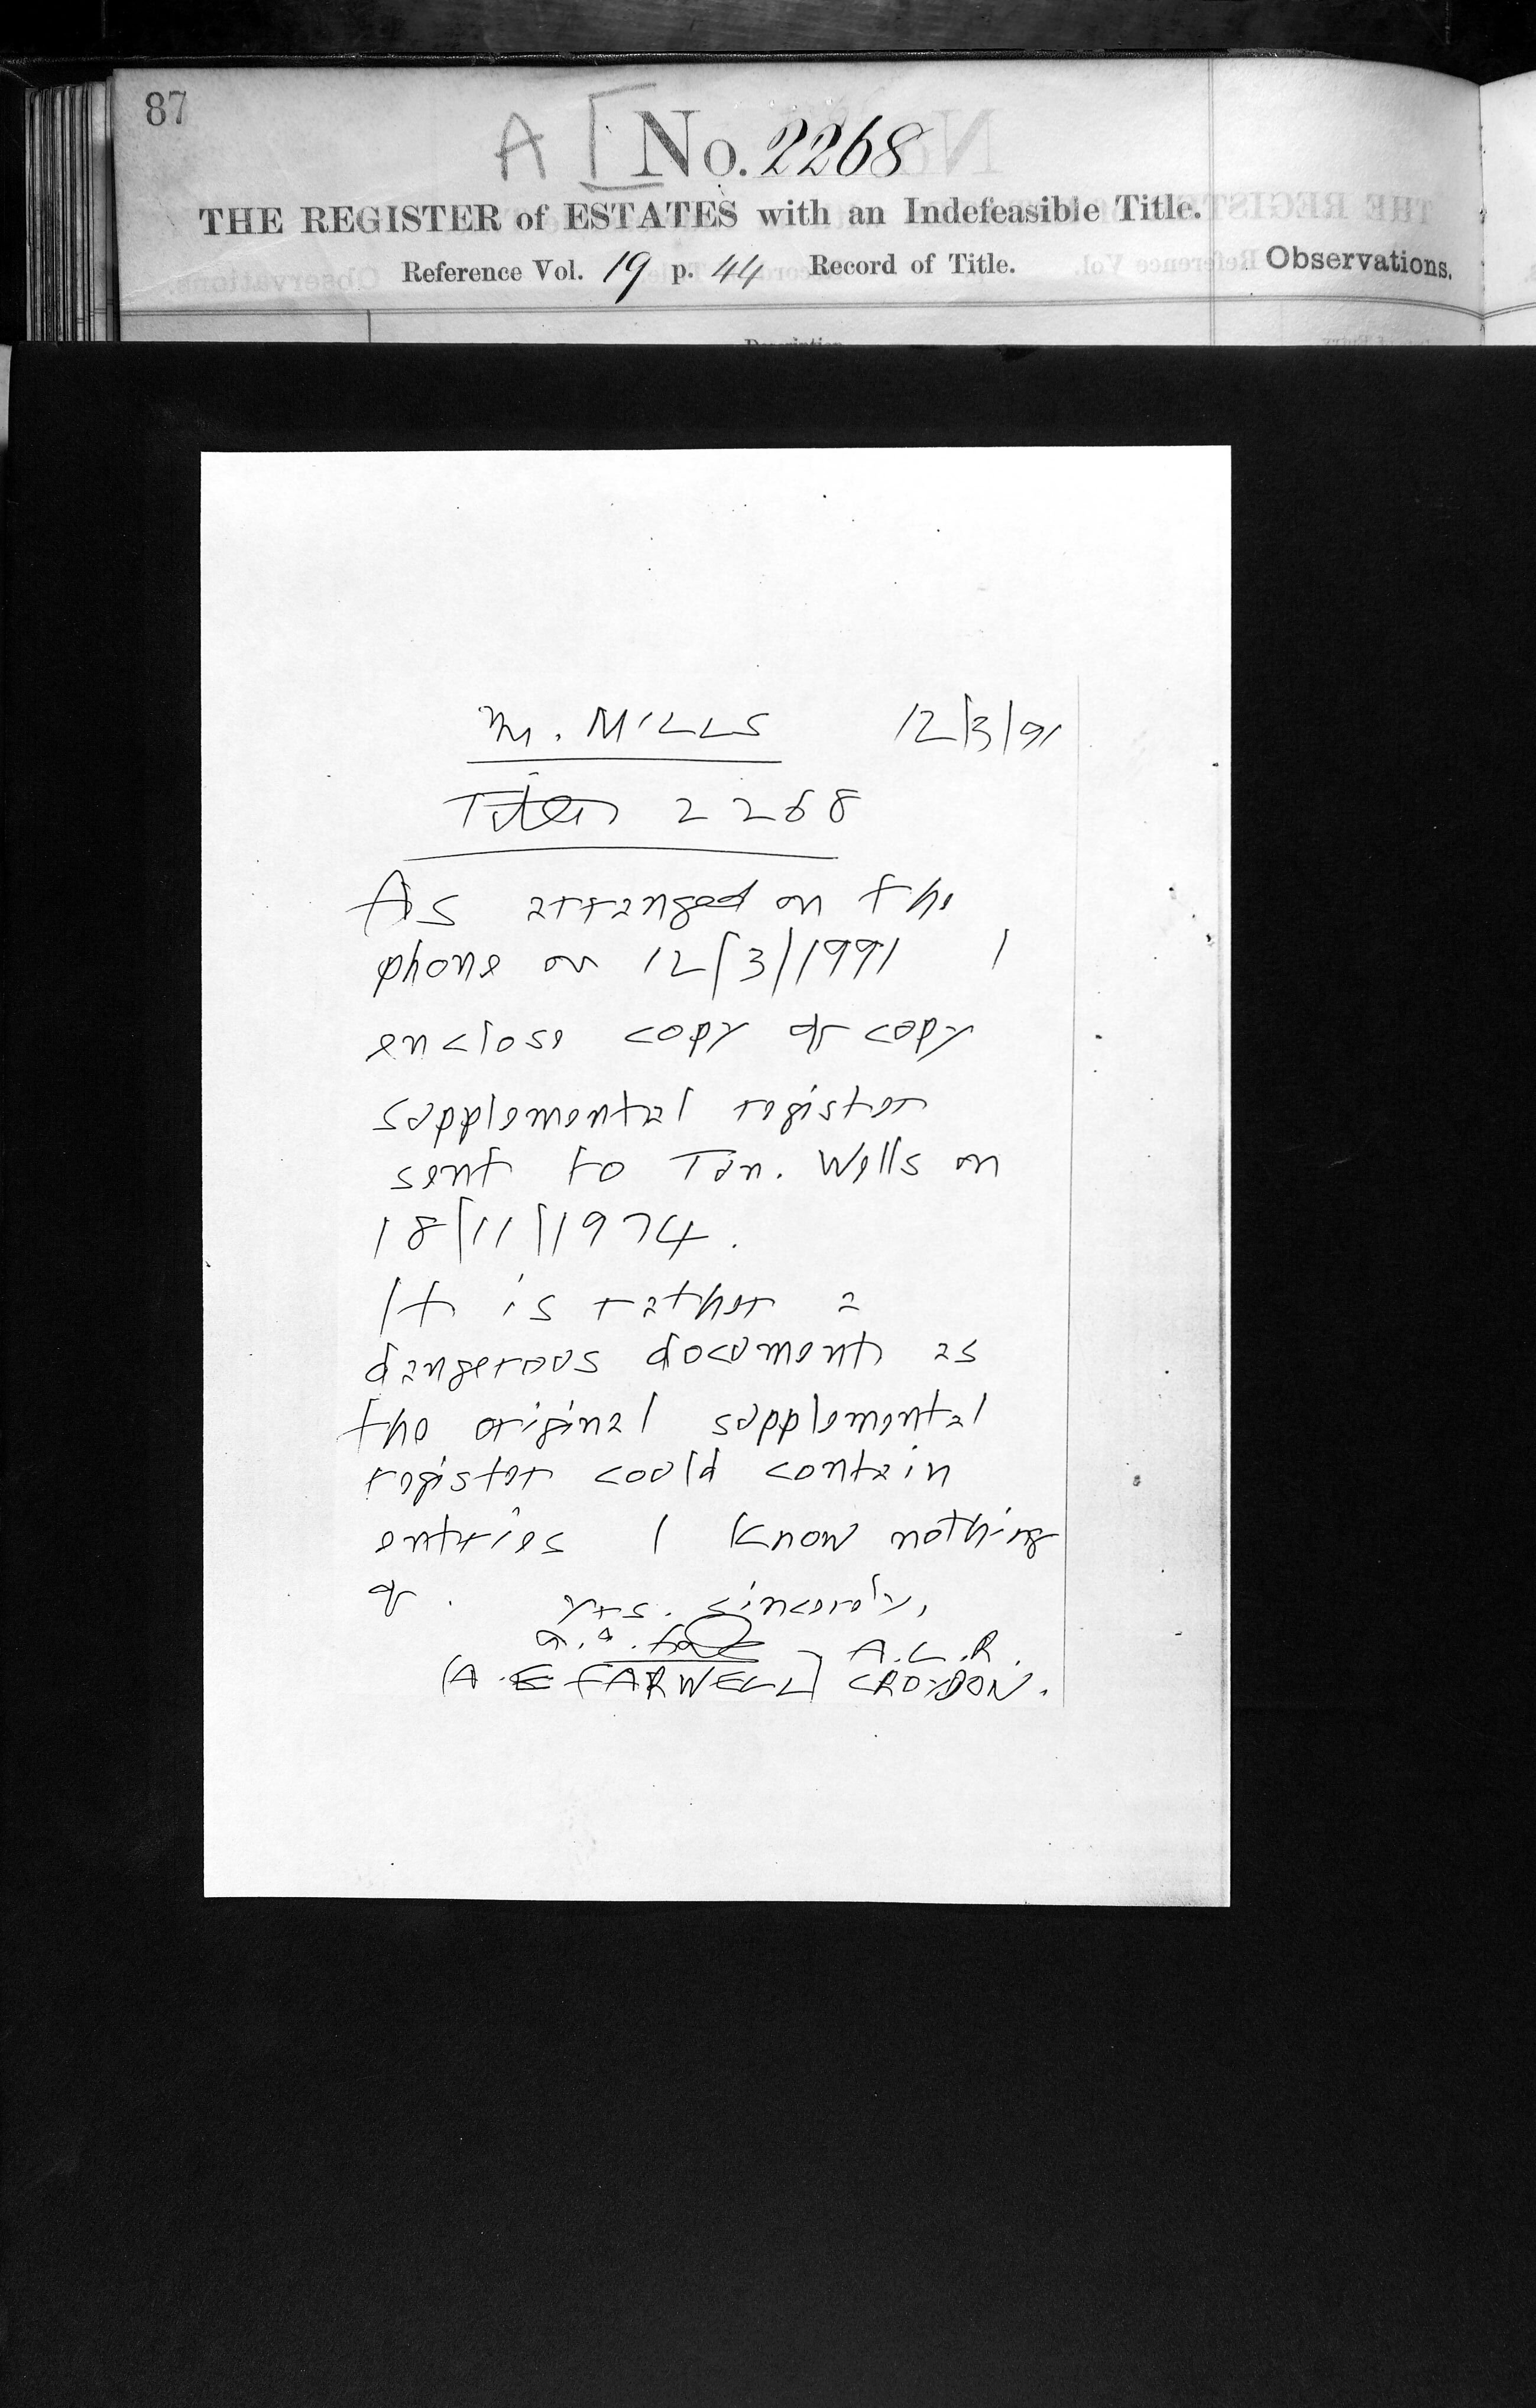 87
A No. 2268
THE REGISTER of ESTATES with an Indefeasible Title.
Reference Vol. 19 p. 44 Record of Title. Observations.
Mr. MILLS 12/3/91
Title 2268
As arranged on the
phone on 12/3/1991 I
enclose copy of copy
supplemental register
sent to Tun. Wells on
18/11/1974.
It is rather a
dangerous document as
the original supplemental
register could contain
entries I know nothing
of.
yrs. sincerely,
A.L.R.
(A.E FARWELL) CROYDON.